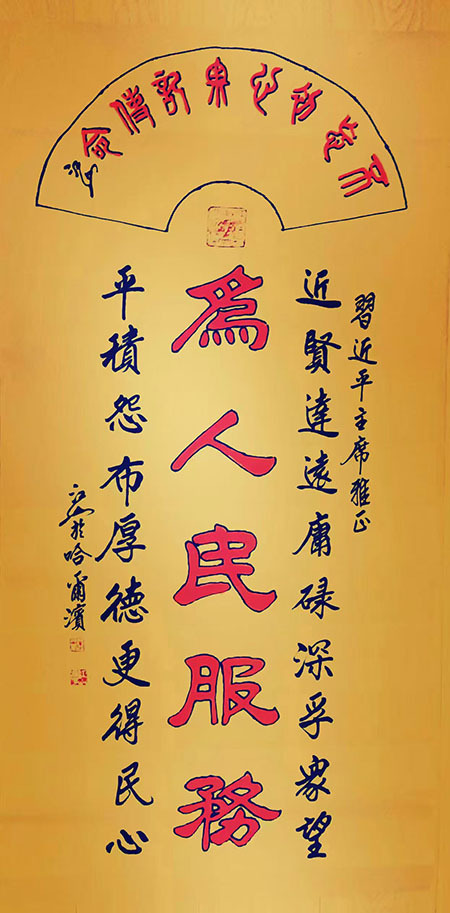 不忘初心牢記使命
習近平主席雅正
近賢達遠庸碌深孚衆望
爲人民服務
平積怨布厚德更得民心
於哈爾濱